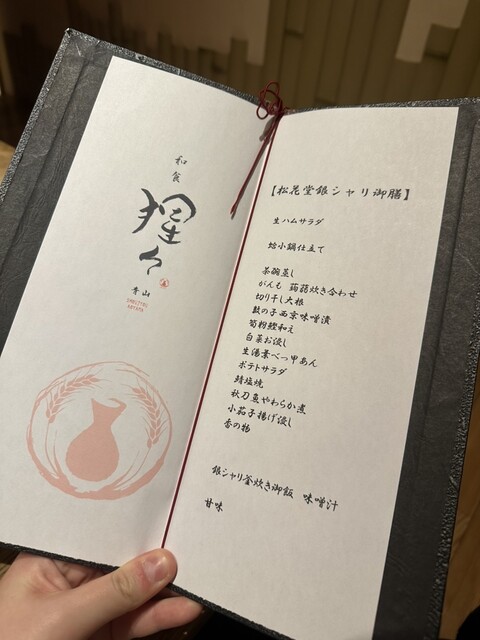 和食
猩々
青山
SHOJYOU
AOYAMA
【松花堂銀シャリ御膳】
生ハムサラダ
蛤小鍋仕立て
茶碗蒸し
がんも 蒟蒻炊き合わせ
切り干し大根
鼓の子西京味噌漬
筍粉鰹和え
白菜お浸し
生湯葉べっ甲あん
ポテトサラダ
鯖塩焼
秋刀魚やわらか煮
小茄子揚げ浸し
香の物
銀シャリ釜炊き御飯 味噌汁
甘味